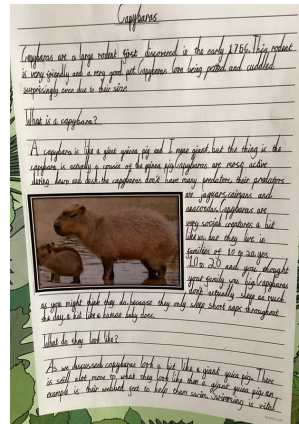 Capybaras
Capybaras are a large rodent first discovered in the early 1766. This rodent
is very friendly and a very good pet. Capybaras love being petted and cuddled
surprisingly even due to their size.
What is a capybara?
A capybara is like a giant guinea pig and I mean giant, but the thing is the
capybara is actually a cousin of the guinea pig. Capybaras are most active
during dawn and dusk. the capybaras don't have many predators, their predators
are jaguars, caimans and
anacondas. Capybaras are
very social creatures a bit
like us. but they live in
families of 10 to 20 yes
10 to 20 and you thought
your family was big. Capybaras
don't actually sleep as much
as you might think they do, because they only sleep short naps throughout
the day a bit like a human baby does.
What do they look like?
As we discussed capybaras look a bit like a giant guinea pig. There
is still alot more to what they look like than a giant guinea pig. an
example is their webbed feet to help them swim. Swimming is vital